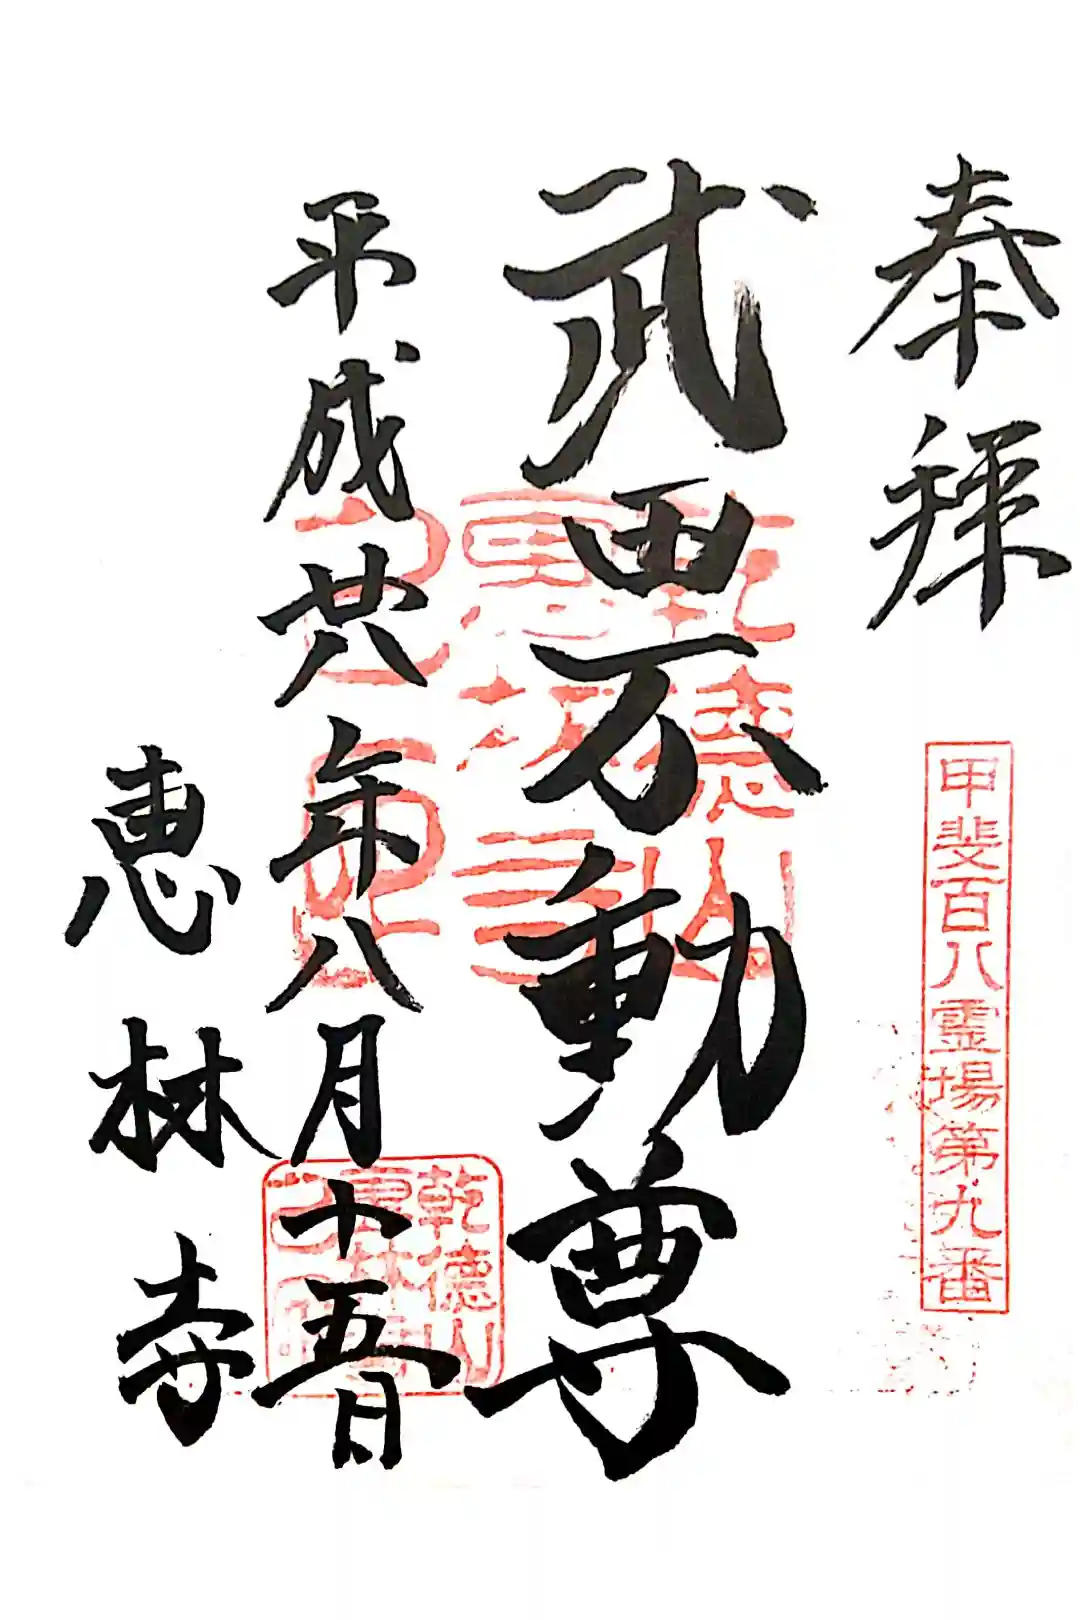 奉拝
甲斐百八霊場第九番
武田不動尊
平成廿六年八月十五日
恵林寺
乾徳山